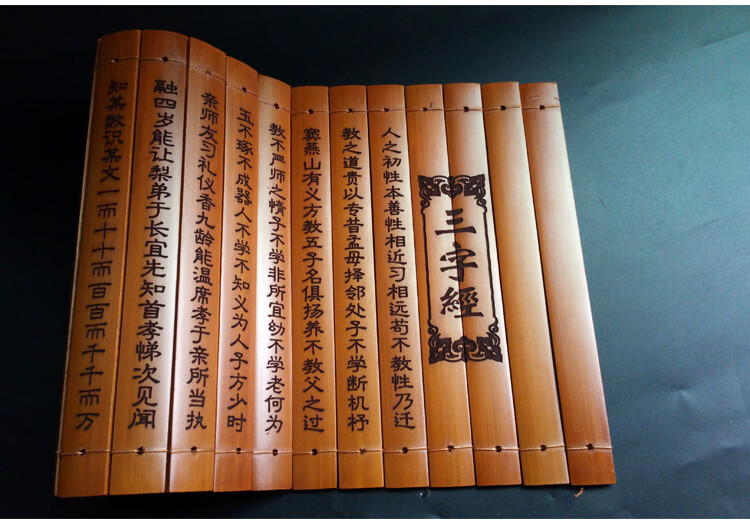 三字經
人之初性本善性相近习相远苟不教性乃迁
教之道贵以专昔孟母择邻处子不学断机杼
窦燕山有义方教五子名俱扬养不教父之过
教不严师之惰子不学非所宜幼不学老何为
玉不琢不成器人不学不知义为人子方少时
亲师友习礼仪香九龄能温席孝于亲所当执
融四岁能让梨弟于长宜先知首孝悌次见闻
知某数识某文一而十十而百百而千千而万